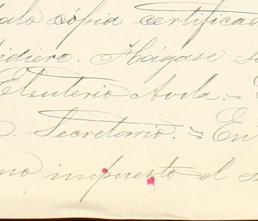 dalo cópia certificad
idiere. Hágase s
Eleuterio Avila.=
o. Secretario.= En
mo impuesto el s